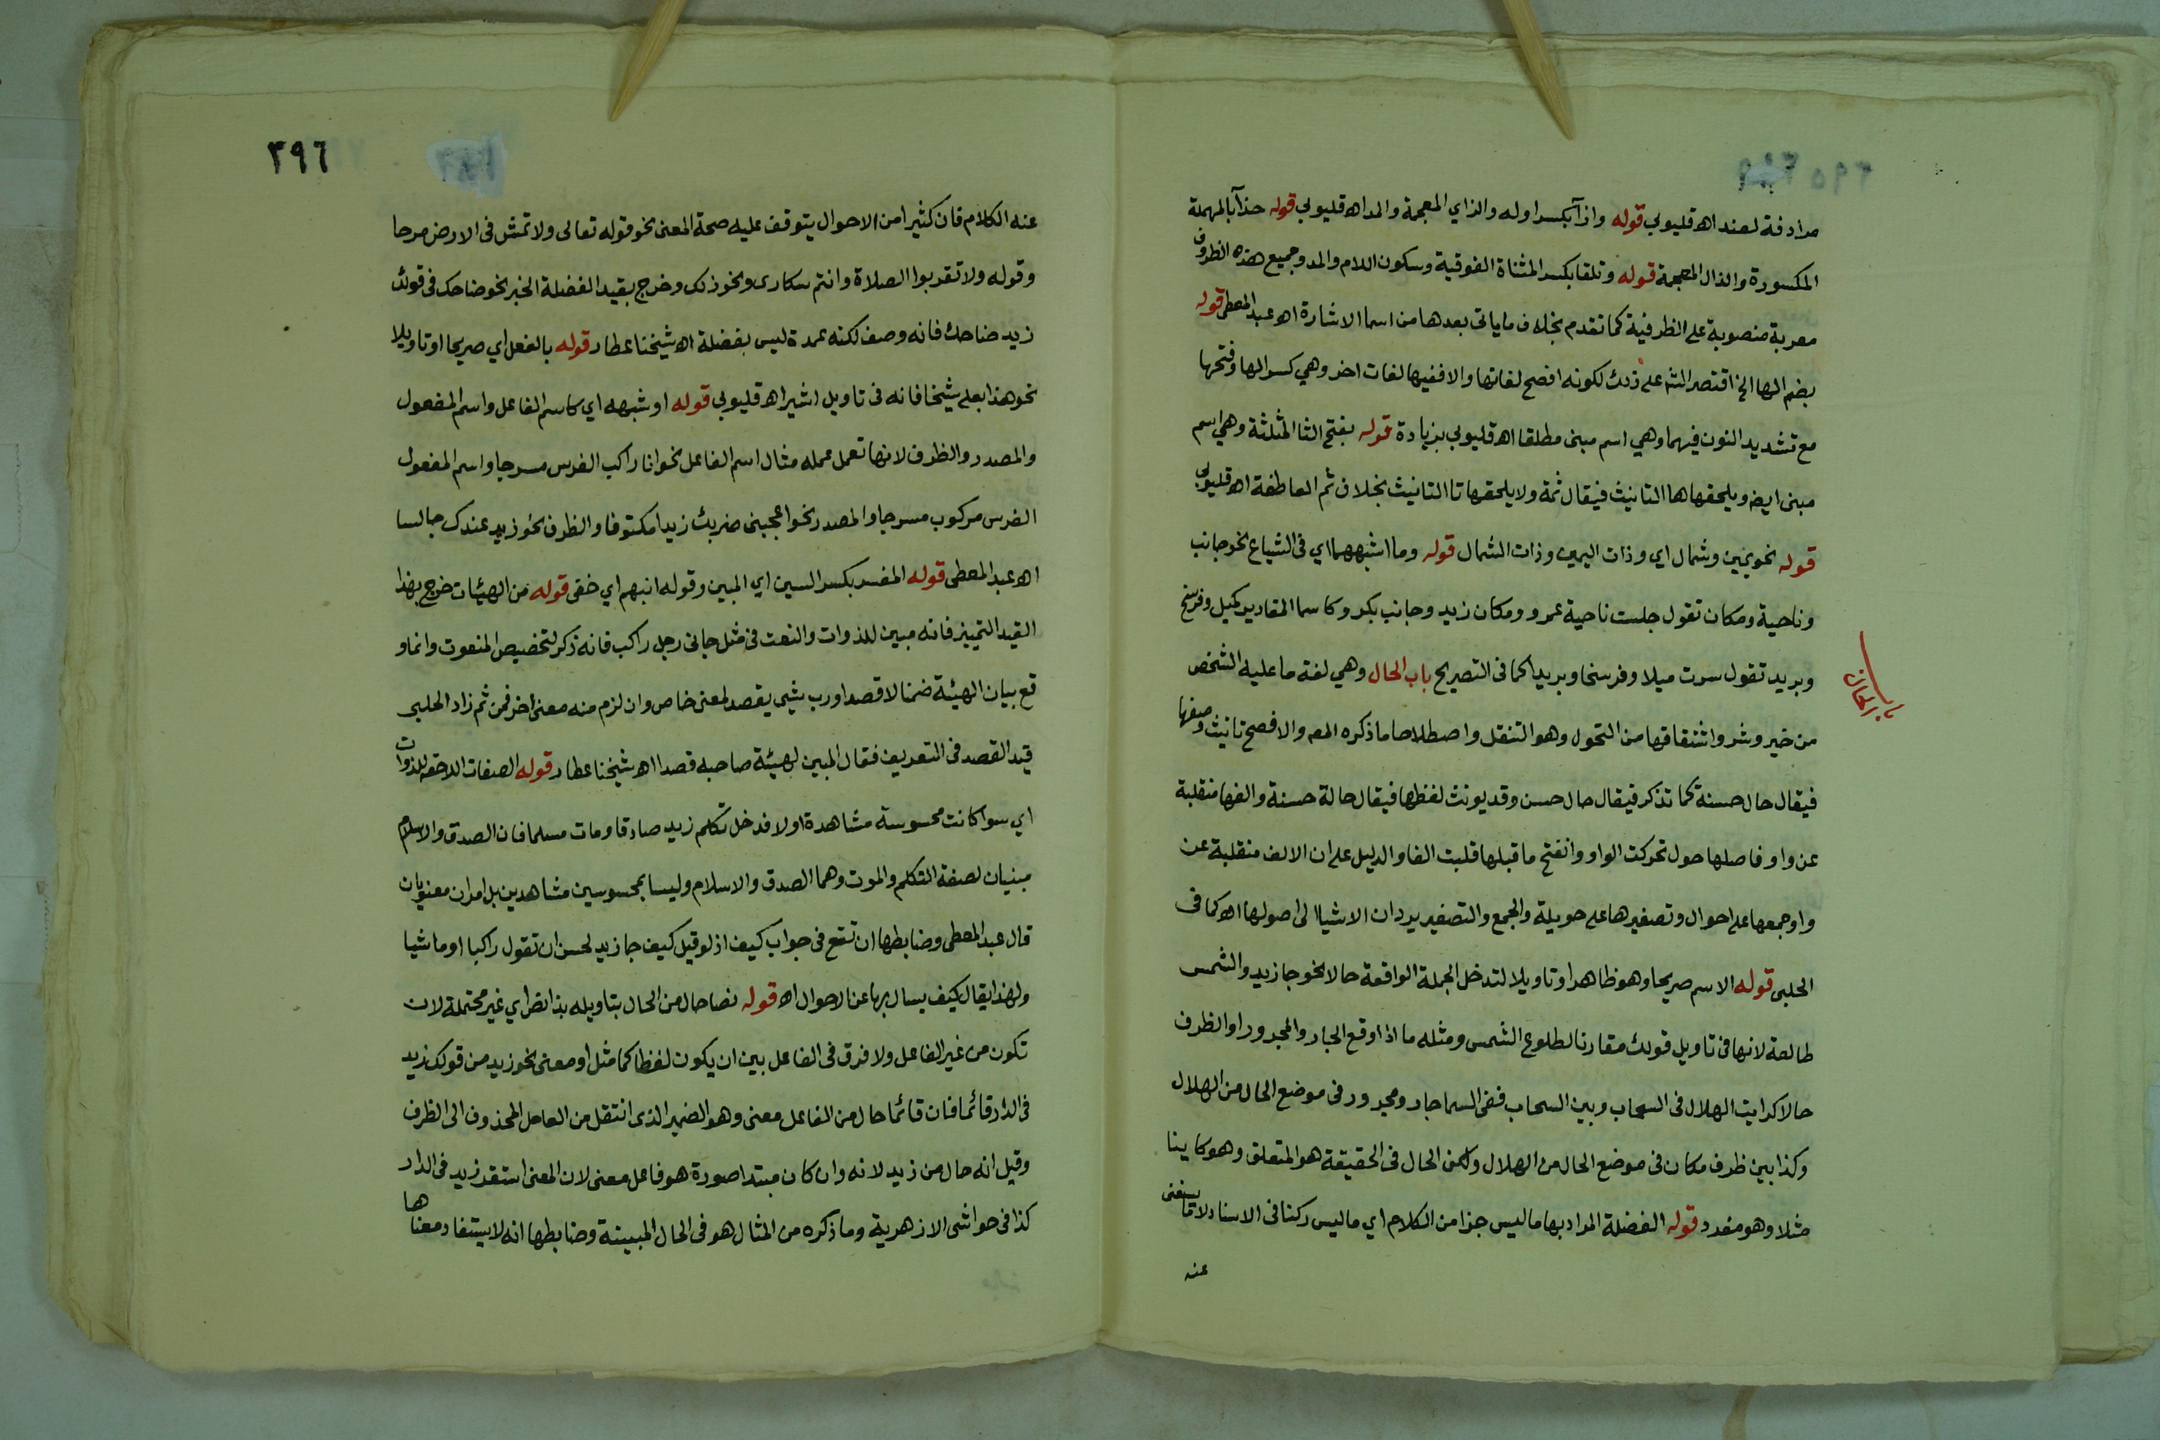 ٣٩٥
مرادفة لعند اهـ قليوبي قوله وازآ بكسر اوله والزاي المعجمة والمد اهـ قليوبي قوله حذآ بالمهملة
المكسورة والذال المعجمة قوله وتلقا بكسر المثناة الفوقية وسكون اللام والمد وجميع هذه الظروف
معربة منصوبة على الظرفية كما تقدم بخلاف ما ياتى بعدها من اسما الاشارة اهـ عبد المعطى قوله
بضم الها الخ اقتصر الش على ذلك لكونه افصح لغاتها والا ففيها لغات اخر وهي كسر الها وفتحها
مع تشديد النون فيهما وهي اسم مبنى مطلقا اهـ قليوبي بزيادة قوله بفتح الثا المثلثة وهي اسم
مبنى ايض ويلحقها ها التانيث فيقال ثمة ولا يلحقها تا التانيث بخلاف ثم العاطفة اهـ قليوبي
قوله نحو يمين وشمال اي وذات اليمين وذات الشمال قوله وما اشبههما اي فى الشياع نحو جانب
وناحية ومكان تقول جلست ناحية عمرو ومكان زيد وجانب بكر وكاسما المقادير كميل وفرسخ
وبريد تقول سرت ميلا وفرسخا وبريدا كما فى التصريح باب الحال وهي لغة ما عليه الشخص
باب الحال
من خير وشر واشتقاقها من التحول وهو التنقل واصطلاحا ما ذكره المص والافصح تانيث وصفها
فيقال حال حسنة كما تذكر فيقال حال حسن وقد يونث لفظها فيقال حالة حسنة والفها منقلبة
عن واو فاصلها حول تحركت الواو وانفتح ما قبلها قلبت الفا والدليل على ان الالف منقلبة عن
واو جمعها على احوال وتصغيرها على حويلة والجمع والتصغير يردان الاشيا الى اصولها اهـ كما فى
الحلبى قوله الاسم صريحا وهو ظاهر او تاويلا لتدخل الجملة الواقعة حالا نحو جا زيد والشمس
طالعة لانها فى تاويل قولك مقارنا لطلوع الشمس ومثله ما اذا وقع الجار والمجرور او الظرف
حالا كرايت الهلال فى السحاب وبين السحاب ففى السما جار ومجرور فى موضع الحال من الهلال
وكذا بين ظرف مكان فى موضع الحال من الهلال ولكن الحال فى الحقيقة هو المتعلق وهو كاينا
مثلا وهو مفرد قوله الفضلة المراد بها ما ليس جزا من الكلام اي ما ليس ركنا فى الاسناد لا ما يستغنى
عنه
٣٩٦
عنه الكلام فان كثيرا من الاحوال يتوقف عليه صحة المعنى نحو قوله تعالى ولا تمش فى الارض مرحا
وقوله ولا تقربوا الصلاة وانتم سكارى ونحو ذلك وخرج بقيد الفضلة الخبر نحو ضاحك فى قولك
زيد ضاحك فانه وصف لكنه عمدة ليس بفضلة اهـ شيخنا عطار قوله بالفعل اي صريحا او تاويلا
نحو هذا بعلي شيخا فانه فى تاويل اشير اهـ قليوبي قوله او شبهه اي كاسم الفاعل واسم المفعول
والمصدر والظرف لانها تعمل عمله مثال اسم الفاعل نحو انا راكب الفرس مسرجا واسم المفعول
الفرس مركوب مسرجا والمصدر نحو اعجبنى ضربك زيدا مكتوفا والظرف نحو زيد عندك جالسا
اهـ عبد المعطى قوله المفسر بكسر السين اي المبين وقوله انبهم اي خفى قوله من الهيئات خرج بهذا
القيد التمييز فانه مبين للذوات والنعت فى مثل جانى رجل راكب فانه ذكر لتخصيص المنعوت وانما و
قع بيان الهيئة ضمنا لا قصدا ورب شيى يقصد لمعنى خاص وان لزم منه معنى اخر فمن ثم زاد الحلبى
قيد القصد فى التعريف فقال المبين لهيئة صاحبه قصدا اهـ شيخنا عطار قوله الصفات اللاحقة للذوات
اي سوا كانت محسوسة مشاهدة اولا فدخل تكلم زيد صادقا ومات مسلما فان الصدق والاسلام
مبنيان لصفة التكلم والموت وهما الصدق والاسلام وليسا بمحسوسين مشاهدين بل امران معنويان
قال عبد المعطى وضابطها ان تقع فى جواب كيف اذ لو قيل كيف جا زيد لحسن ان تقول راكبا او ماشيا
ولهذا يقال كيف يسال بها عن الاحوال اهـ قوله نصا حال من الحال بتاويله بذا نص اي غير محتملة لان
تكون من غير الفاعل ولا فرق فى الفاعل بين ان يكون لفظا كما مثل او معنى نحو زيد من قولك زيد
فى الدار قائما فان قائما حال من الفاعل معنى وهو الضمير الذى انتقل من العامل المحذوف الى الظرف
وقيل انه حال من زيد لانه وان كان مبتدا صورة هو فاعل معنى لان المعنى استقر زيد فى الدار
كذا فى حواشى الازهرية وما ذكره من المثال هو فى الحال المبينة وضابطها انه لا يستفاد معناها